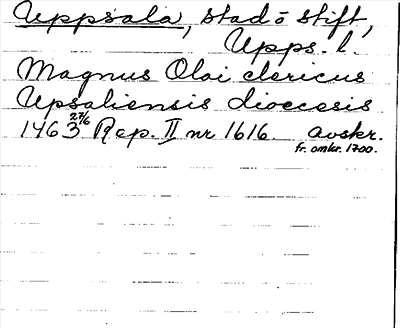 Uppsala, stad o stift,
Upps. l.
Magnus Olai clericus
Upsaliensis diocesis
1463 27/6 Rep. II nr 1616. avskr.
fr. omkr. 1700.